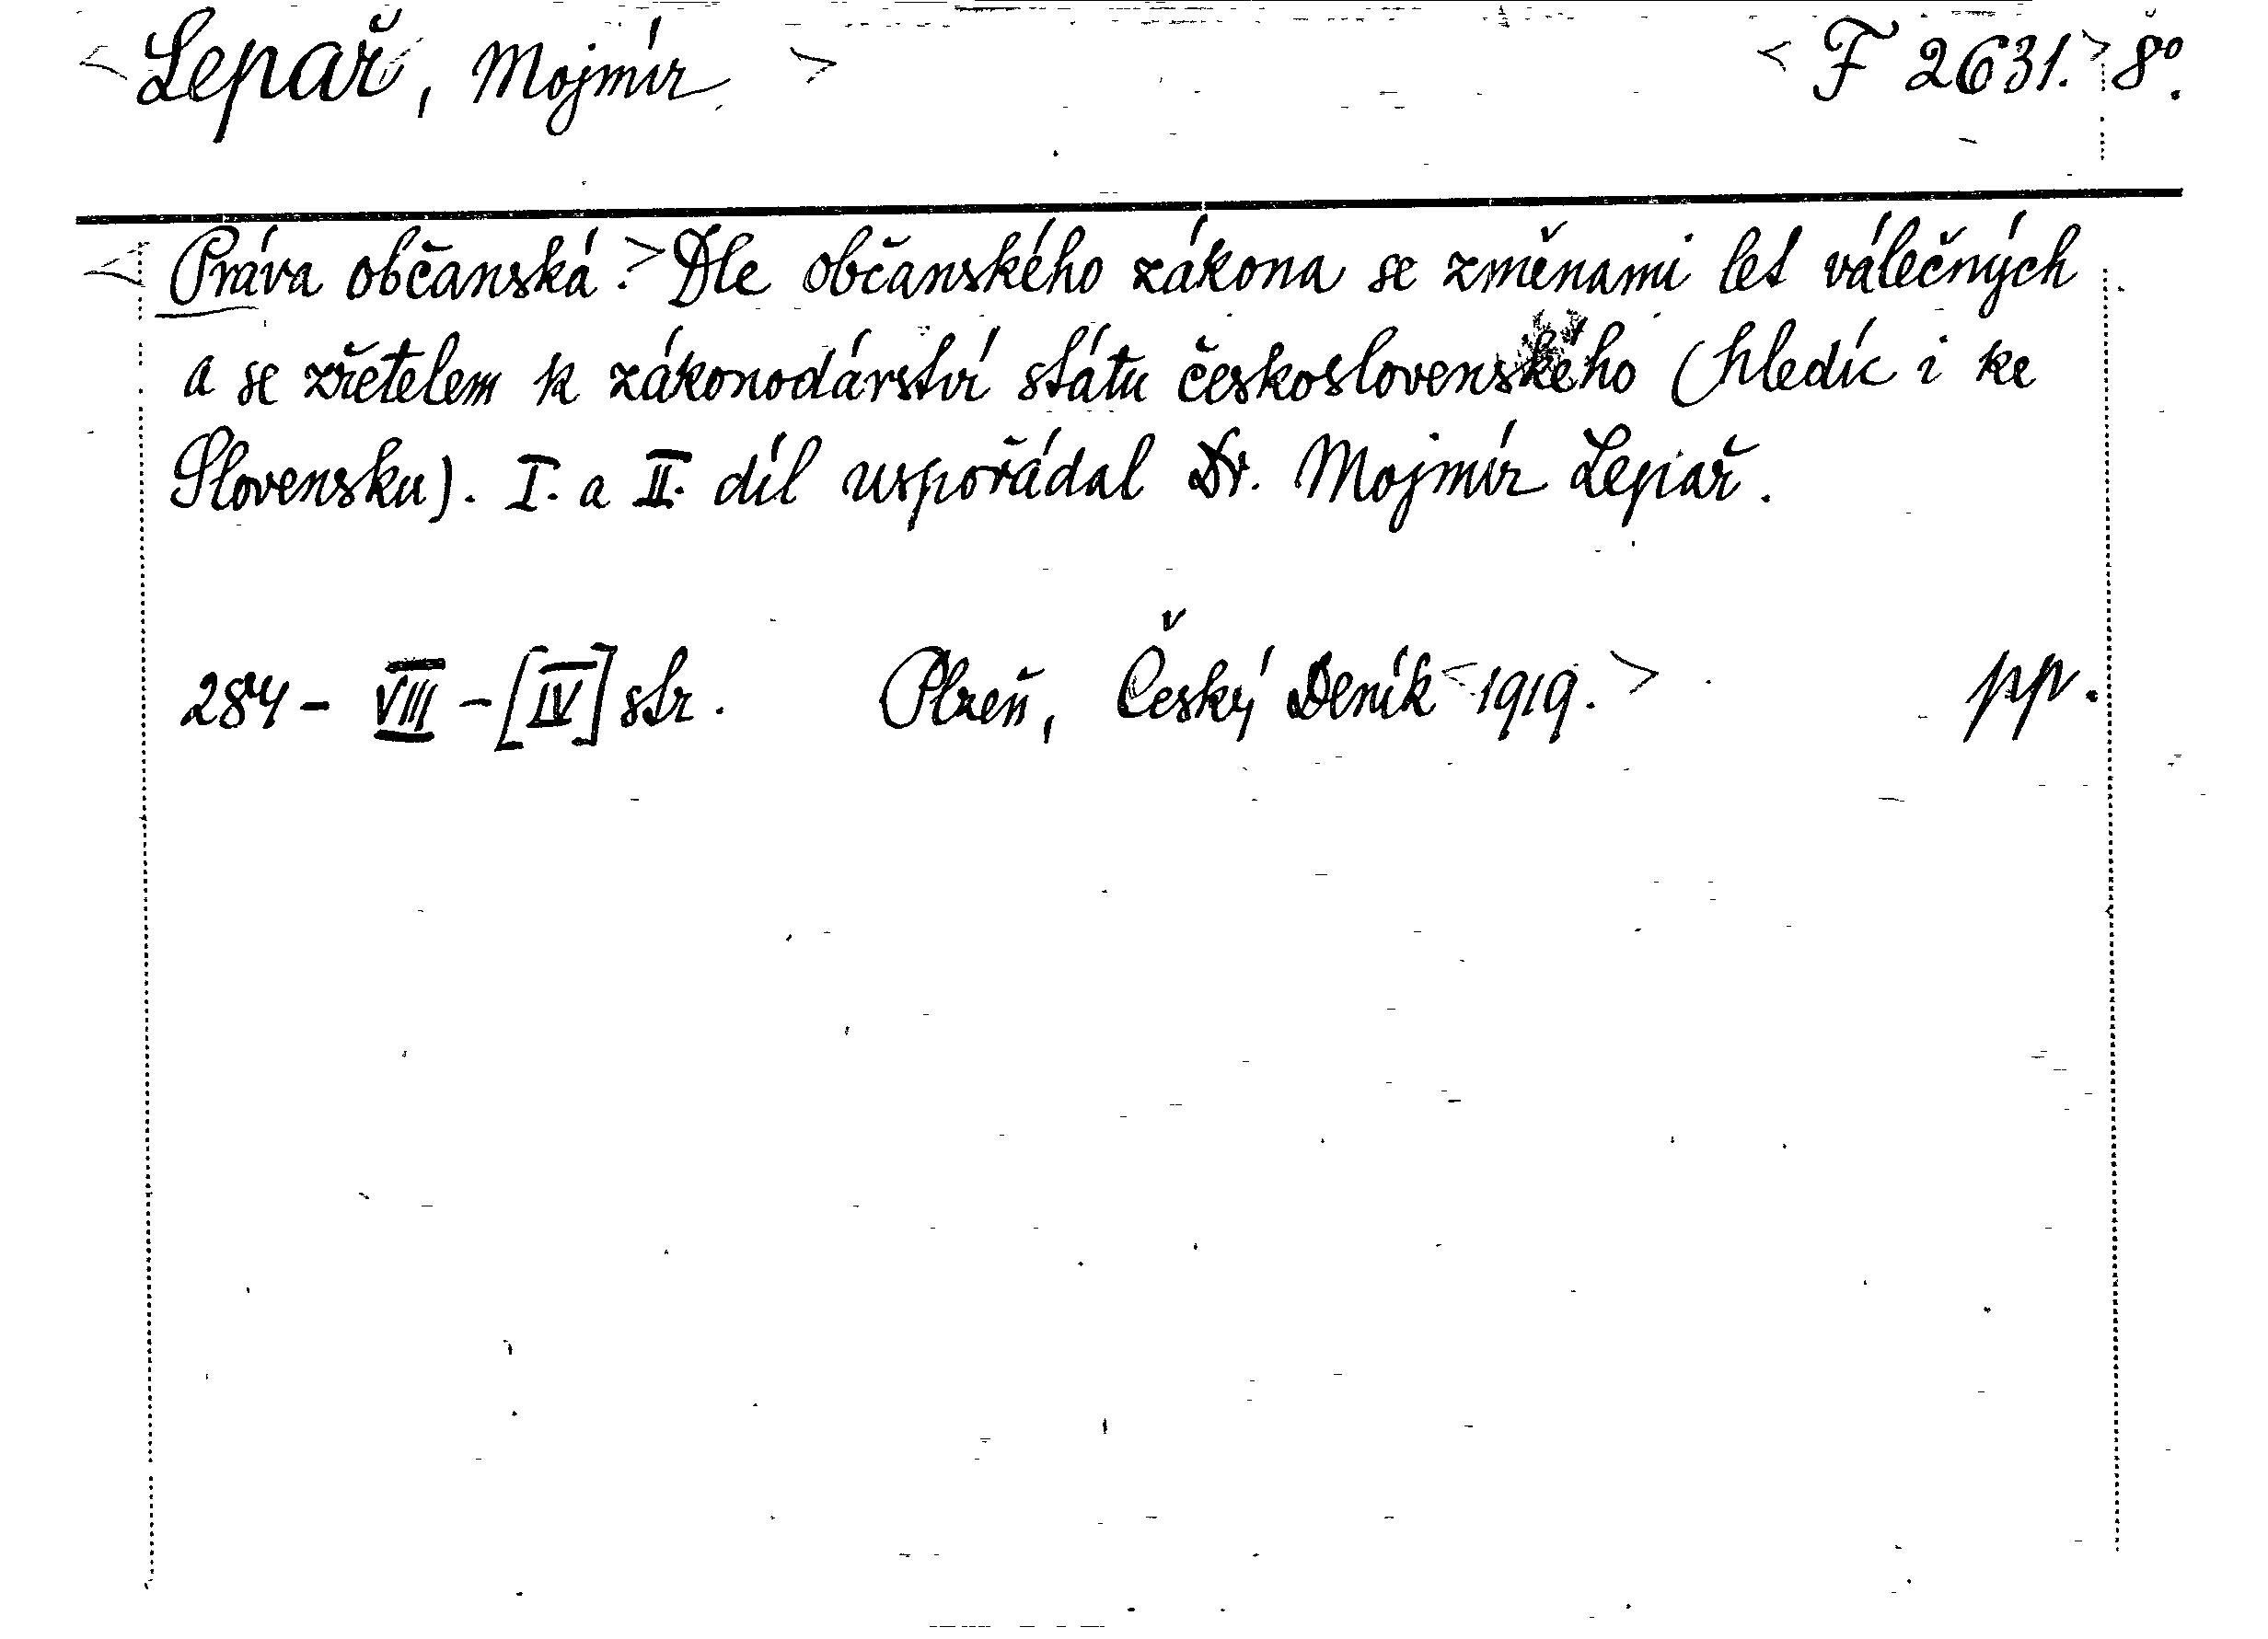 < Lepař, Mojmír > < F 2631. > 8°.
< Práva občanská. > Dle občanského zákona se změnami let válečných
a se zřetelem k zákonodárství státu československého (hledíc i ke
Slovensku). I. a II. díl uspořádal Dr. Mojmír Lepař.
284 - VIII - [IV] str. Plzeň, Český Deník < 1919. > pp.